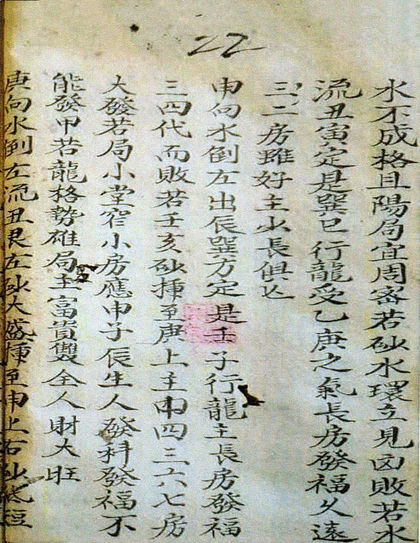 22
水不成格且陽局宜周密若砂水環立見凶敗若水
流丑寅定是巽巳行龍受乙庚之氣長房發福久遠
三二房雖好主少長俱亡
申向水倒左出辰巽方定是壬子行龍主長房發福
三四代而敗若壬亥砂揷至庚上主中四三六七房
大發若局小堂窄小房應申子辰生人發科發福不
能發甲若龍格勢雄局主富貴雙全人財大旺
庚向水倒左流丑艮左砂大盛揷至申上右砂